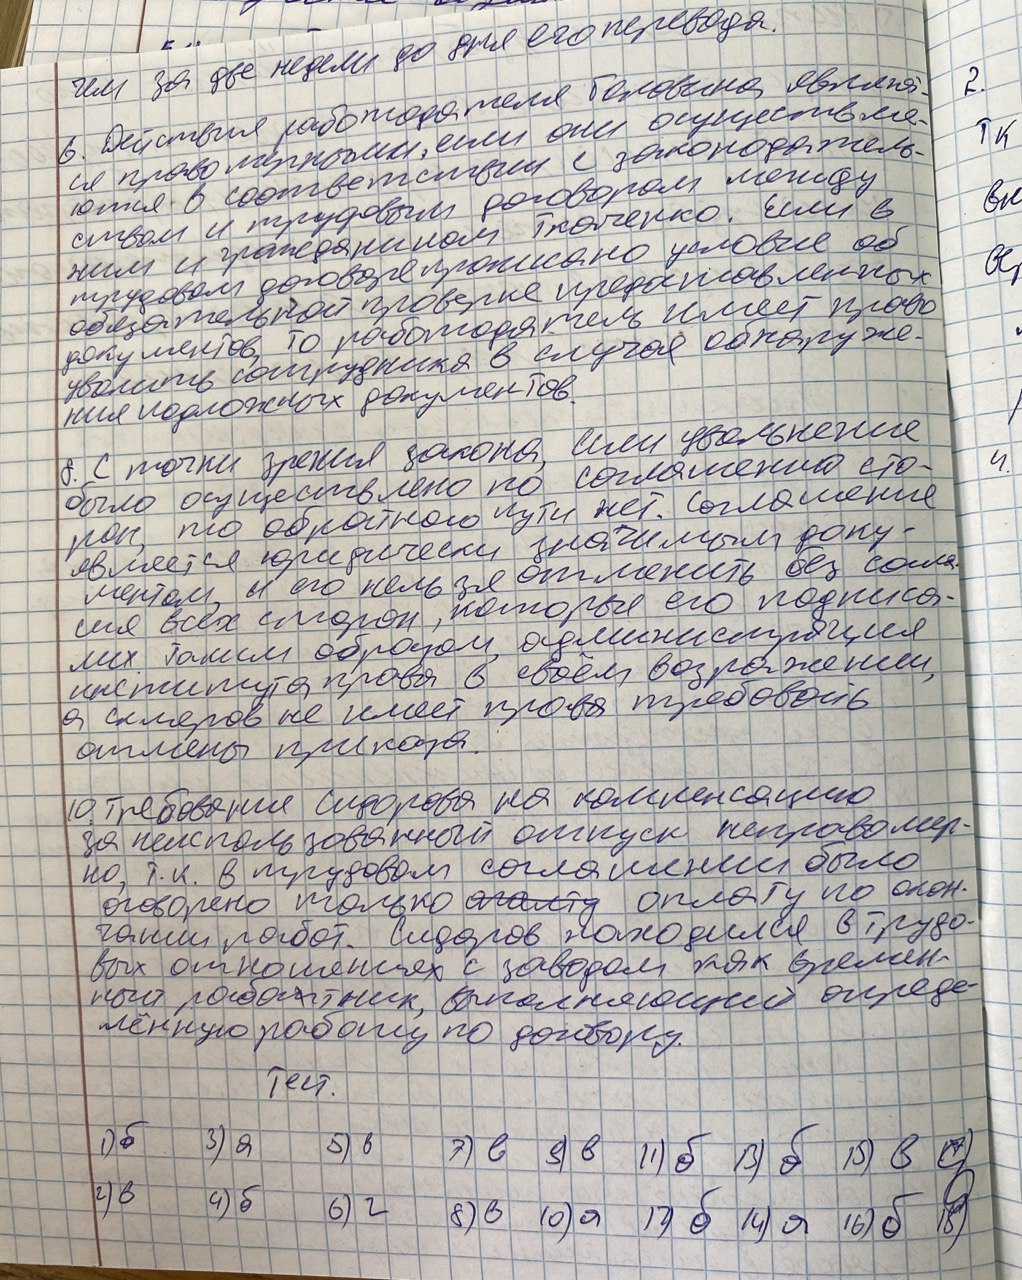 чем за две недели до дня его перевода.
6. Действия работодателя Головина являют-
ся правомерными, если они осуществля-
ются в соответствии с законодатель-
ством и трудовым договором между
ним и гражданином Ткаченко. Если в
трудовом договоре прописано условие об
обязательной проверке предоставленных
документов, то работодатель имеет право
уволить сотрудника в случае обнаруже-
ния подложных документов.
8. С точки зрения закона, если увольнение
было осуществлено по соглашению сто-
рон, то обратного пути нет. Соглашение
является юридически значимым доку-
ментом, и его нельзя отменить без согла-
сия всех сторон, которые его подписа-
ли. Таким образом, администрация
института права в своём возражении,
а скляров не имеет права требовать
отмены приказа.
10. Требование Сидорова на компенсацию
за неиспользованный отпуск неправомер-
но, т.к. в трудовом соглашении было
оговорено только оплату по окон-
чании работ. Сидоров находился в трудо-
вых отношениях с заводом как времен-
ный работник, выполняющий опреде-
лённую работу по договору.
Тест.
1) б 3) а 5) в 7) в 9) в 11) б 13) б 15) в 17)
2) в 4) б 6) г 8) в 10) а 12) б 14) а 16) б 18)
2.
ТК
вн
4.